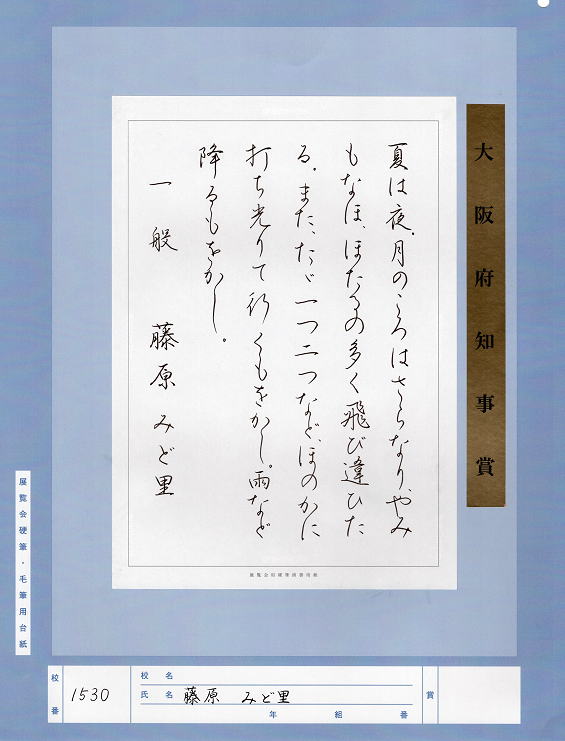 大阪府知事賞
夏は夜。月のころはさらなり、やみ
もなほ、ほたるの多く飛び違ひた
る。また、たゞ一つ二つなど、ほのかに
打ち光りて行くもをかし。雨など
降るもをかし。
一般 藤原みど里
展覧会硬筆・毛筆用台紙
校番
1530
校名
氏名 藤原 みど里
年 組 番
賞